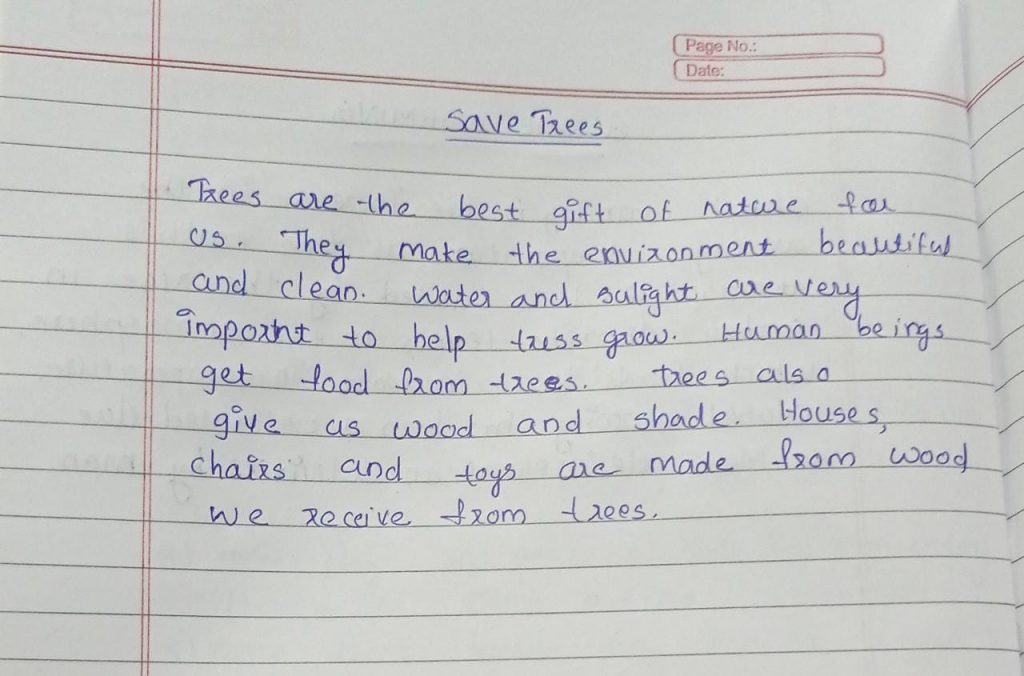 Page No.:
Date:
Save Trees
Trees are the best gift of nature for
us. They make the environment beautiful
and clean. Water and sulight are very
importnt to help tress grow. Human beings
get food from trees. trees also
give us wood and shade. Houses,
chairs and toys are made from wood
we receive from trees.